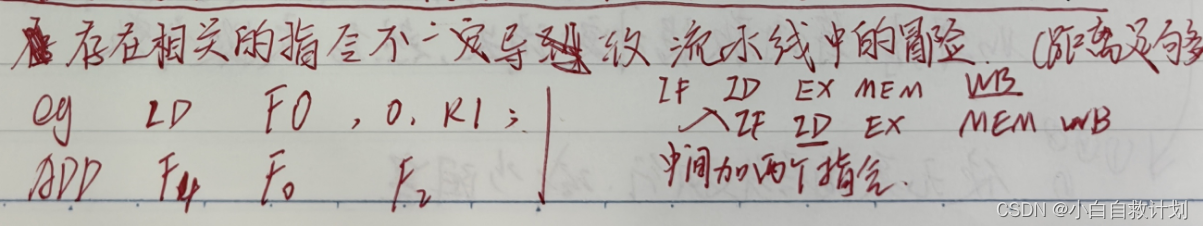 存在相关的指令不一定导致流水线中的冒险. (距离足够多
eg LD F0, 0, R1;
ADD F4 F0 F2
IF ID EX MEM WB
入IF ID EX MEM WB
中间加两个指令.
CSDN @小白自救计划